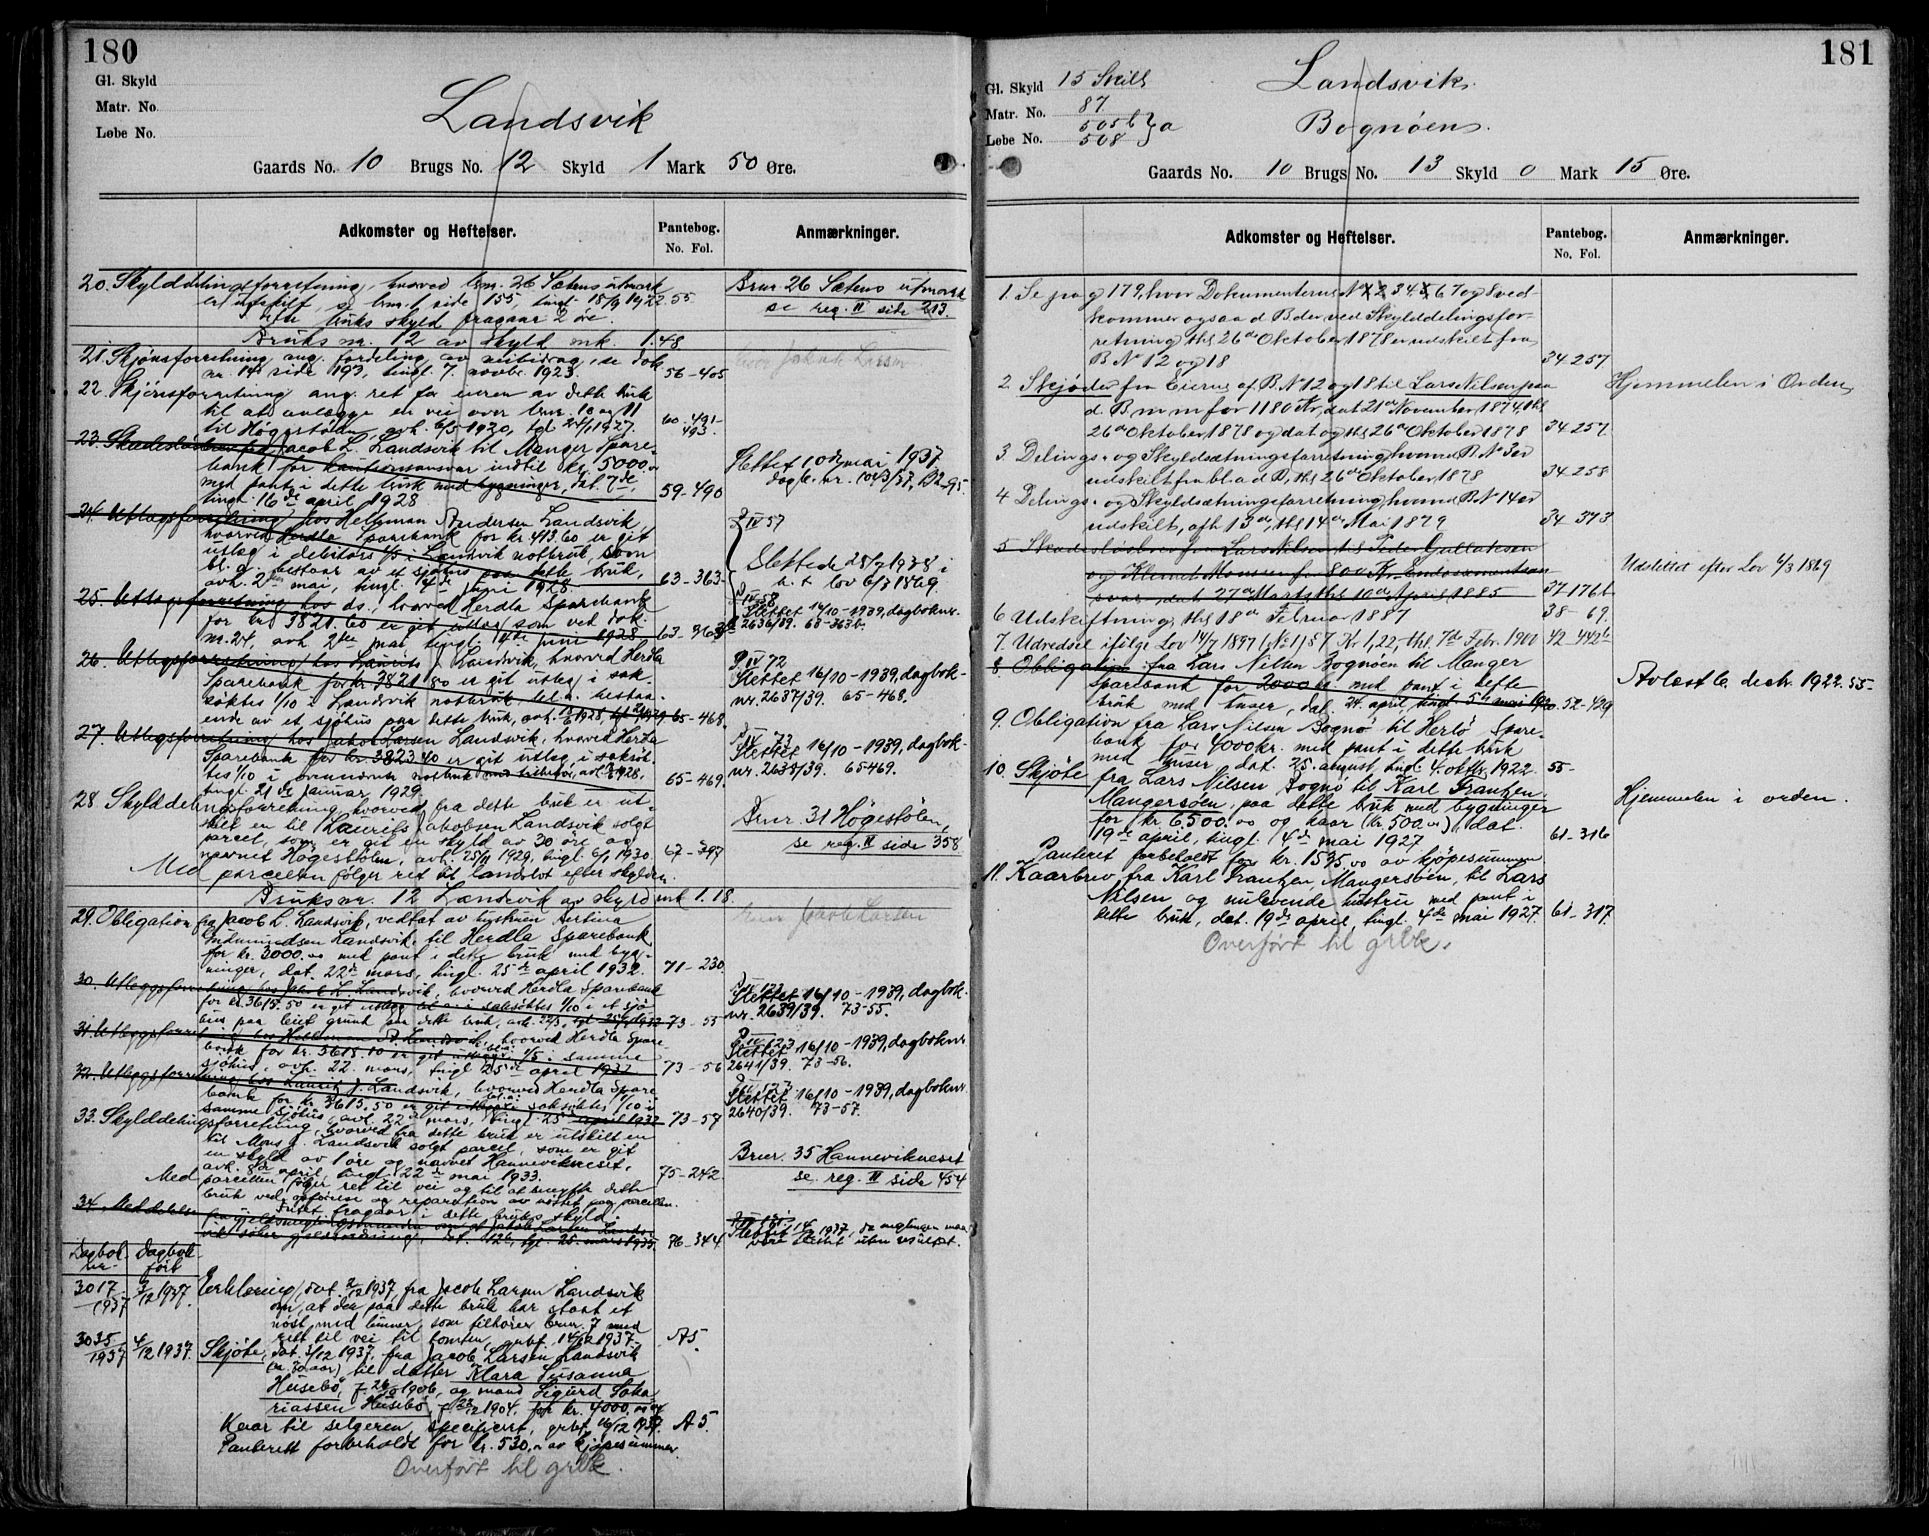 180
Gl. Skyld
Matr. No
Løbe No.
Landsvik
Gaards No. 10 Brugs No. 12 Skyld 1 Mark 50 Øre.
Adkomster og Heftelser.
Pantebog.
No. Fol.
Anmærkninger.
20. Skylddelingsforretning, hvorved brnr. 26 Sætens utmark
er utskilt, se brnr. 1 side 155 tingl. 15/9 1922 55
dette bruks skyld fragaar 2 øre.
Brnr. 26 Sætens utmark
se reg. II side 213.
Bruks nr. 12 av skyld mk. 1.48
21. Skjønsforretning ang. fordeling av utbidrag, se dok.
nr. 14 side 193, tingl. 7. novbr. 1923. 56-405
22. Skjønsforretning ang. ret for eieren av dette bruk
til at anlægge en vei over brnr. 10 og 11
til Høgestølen, avh. 6/5 1920, tgl. 24/1 1927. 60-491-
493.
23. Skadesløsbrev fra Jacob L. Landsvik til Manger Spare-
bank for kautionsansvar indtil kr. 5000.00
med pant i dette bruk med bygninger, dat. 7de,
tingl. 16de april 1928 59-490
Slettet 10de mai 1937.
dagb. nr. 1043/37, B2-95.
24. Utlægsforretning hos Heltman Andersen Landsvik,
hvorved Herdla Sparebank for kr. 493.60 er git
utlæg i debitors 1/5 i Landsvik notbruk, som
bl. a. bestaar av et sjøhus paa dette bruk,
avh. 2den mai, tingl. 4de juni 1928. 63-363
P IV 57
Slettede 28/7 1938 i
h. t. lov 6/3 1869.
25. Utlægsforretning hos ds., hvorved Herdla Sparebank
for kr. 3821.60 er git utlæg som ved dok.
nr. 24, avh. 2den mai, tingl. 4de juni 1928 63-363b
P IV 58
Slettet 16/10-1939, dagboknr.
2636/39. 63-363b.
26. Utlægsforretning hos Laurits J. Landsvik, hvorved Herdla
Sparebank for kr. 3821.80 er git utlæg i sak-
søktes 1/10 i Landsvik notbruk bl. a. bestaa-
ende av et sjøhus paa dette bruk, 65-468.
P. IV 72
Slettet 16/10-1939, dagbok-
nr. 2637/39. 65-468.
27. Utlægsforretning hos Jakob Larsen Landsvik, hvorved Herdla
Sparebank for kr. 3823.40 er git utlæg i saksøk-
tes 1/10 i
tingl. 21de januar 1929. 65-469.
P. IV 73
Slettet 16/10-1939, dagbok-
nr. 2638/39. 65-469.
28. Skylddelingsforretning, hvorved fra dette bruk er ut-
skilt en til Laurits Jakobsen Landsvik solgt
parcel, som er git en skyld av 30 øre og
navnet Høgestølen, avh. 25/11 1929, tingl. 6/1 1930. 67-397
Med parcellen følger ret til landslot efter skylden.
Brnr. 31 Høgestølen,
se reg. II side 358
Bruksnr. 12 Landsvik av skyld mk 1.18.
29. Obligation fra Jacob L. Landsvik, vedtat av hustrun Bertina
Gudmundsen Landsvik, til Herdla Sparebank
for kr. 3000.00 med pant i dette bruk med byg-
ninger, dat. 22de mars, tingl. 25de april 1932. 71-230
30. Utleggsforretning hos Jakob L. Landsvik, hvorved Herdla Sparebank
for kr. 3615.50 er git utlegg bl. a. i saksøktes 1/10 i et sjø-
hus paa leiet grunn paa dette bruk, 73-55
P IV 123
Slettet 16/10-1939, dagbok-
nr. 2639/39. 73-55.
31. Utleggsforretning hos Heltman A. Landsvik, hvorved Herdla Spare-
bank for kr. 3615.10 er git utlegg 1/5 i samme
sjøhus, avh. 22. mars, tingl. 25de april 1932 73-56
P IV 123
Slettet 16/10-1939, dagboknr.
2641/39. 73-56.
32. Utleggsforretning hos Laurits J. Landsvik, hvorved Herdla Spare-
bank for kr. 3615.50 er git utlegg i saksøktes 1/10 i
samme sjøhus, avh. 22de mars, tingl. 25de april 1932 73-57
P IV 123
Slettet 16/10-1939, dagboknr.
2640/39. 73-57.
33. Skylddelingsforretning, hvorved fra dette bruk er utskilt en
til Mons J. Landsvik solgt parcel, som er git
en skyld av 1 øre og navnet Hannevikneset,
avh. 8de april, tingl. 22de mai 1933. 75-242
Med parcellen følger ret til vei og til at benytte dette
bruk ved opførsel og reparation av nøstet paa parcellen.
fragaar i dette bruks skyld.
Brnr. 35 Hannevikneset
se reg. III side 454
34. Meddelelse fra gjeldsmeglingsnemnda om at Jakob Larsen Lands-
vik søker gjeldsordning, tgl. 25. mars 1935 76-344
Slettet 1937, da meglingen maa
være sluttet uten resultat.
Dagbok
nr.
Dagbok
ført
3017/1937 3/12 1937. Erklæring, dat. 2/12 1937, fra Jacob Larsen Landsvik
om, at der paa dette bruk har staat et
nøst med lunner, som tilhører brnr. 7 med
rett til vei til tomten, grbf. 14/12 1937. A5.
3035/1937 4/12 1937. Skjøte, dat. 3/12 1937, fra Jacob Larsen Landsvik
til datter Klara Susanna
Husebø, f. 26/ 1906, og mand Sigurd Saka-
riassen Husebø, f. 1904, for kr. 4000.00 og
Kaar til selgeren, specificert, grbf. 16/12 1937. A5.
Panterett forbeholdt for kr. 530,00 av kjøpesummen.
Overført til grbk.
181
Gl. Skyld 15 Skill
Matr. No. 87.
Løbe No. 505b } a
508
Landsvik.
Bognøen.
Gaards No. 10 Brugs No. 13 Skyld 0 Mark 15 Øre.
Adkomster og Heftelser.
Pantebog.
No. Fol.
Anmærkninger.
1. Se pag 179, hvor Dokumenterne No 1 2 3 4 5 6 7 og 8 ved-
kommer ogsaa d B der ved Skylddelingsfor-
retning thl 26de Oktober 1878 er udskilt fra
B No 12 og 18 34 257
2. Skjøde fra Eierne af B. No 12 og 18 til Lars Nilsen paa
d B m m for 1180 Kr, dat 21de November 1874, thl
26de Oktober 1878 og dat og thl 26de Oktober 1878 34 257
Hjemmelen i Orden
3. Delings- og Skyldsætningsforretning hvorved B No er
udskilt fra bl. a d B, thl 26de Oktober 1878 34 258
4 Delings- og Skyldsætningsforretning, hvorved B No 14 er
udskilt, afh 13de, thl 14de Mai 1879 34 373
5 Skadesløsbrev fra Lars Nilsen til Peder Gullaksen
og Klemet Monssen for 800 Kr. Endossementsan-
svar, dat 27de Marts thl 10de April 1885 37 176b
Udslettet efter Lov 6/3 1869
6 Udskiftning, thl 18de Februar 1887 38 69.
7. Udredsel ifølge Lov 14/7 1897 (No 1) § 7 Kr 1,22, thl 7de Febr. 1900 42 442b
8 Obligation fra Lars Nilsen Bognøen til Manger
Sparebank for 2000 kr. med pant i dette
bruk med huser, dat. 24. april, tingl. 5te mai 1920. 52-429
Avlæst 6. decbr. 1922. 55-
9. Obligation fra Lars Nilsen Bognø til Herlø Spare-
bank for 4000 kr. med pant i dette bruk
med huser dat. 25. august, tingl. 4. oktbr. 1922. 55-
10. Skjøte fra Lars Nilsen Bognø til Karl Frantzen,
Mangersøen, paa dette bruk med bygninger
for kr. 6500.00 og kaar (kr. 500.00), dat.
19de april, tingl. 4de mai 1927 61-316
Panteret forbeholdt for kr. 1595.00 av kjøpesummen
Hjemmelen i orden.
11. Kaarbrev fra Karl Frantzen, Mangersøen, til Lars
Nilsen og nulevende hustru med pant i
dette bruk, dat. 19de april, tingl. 4de mai 1927. 61-317
Overført til grbk.